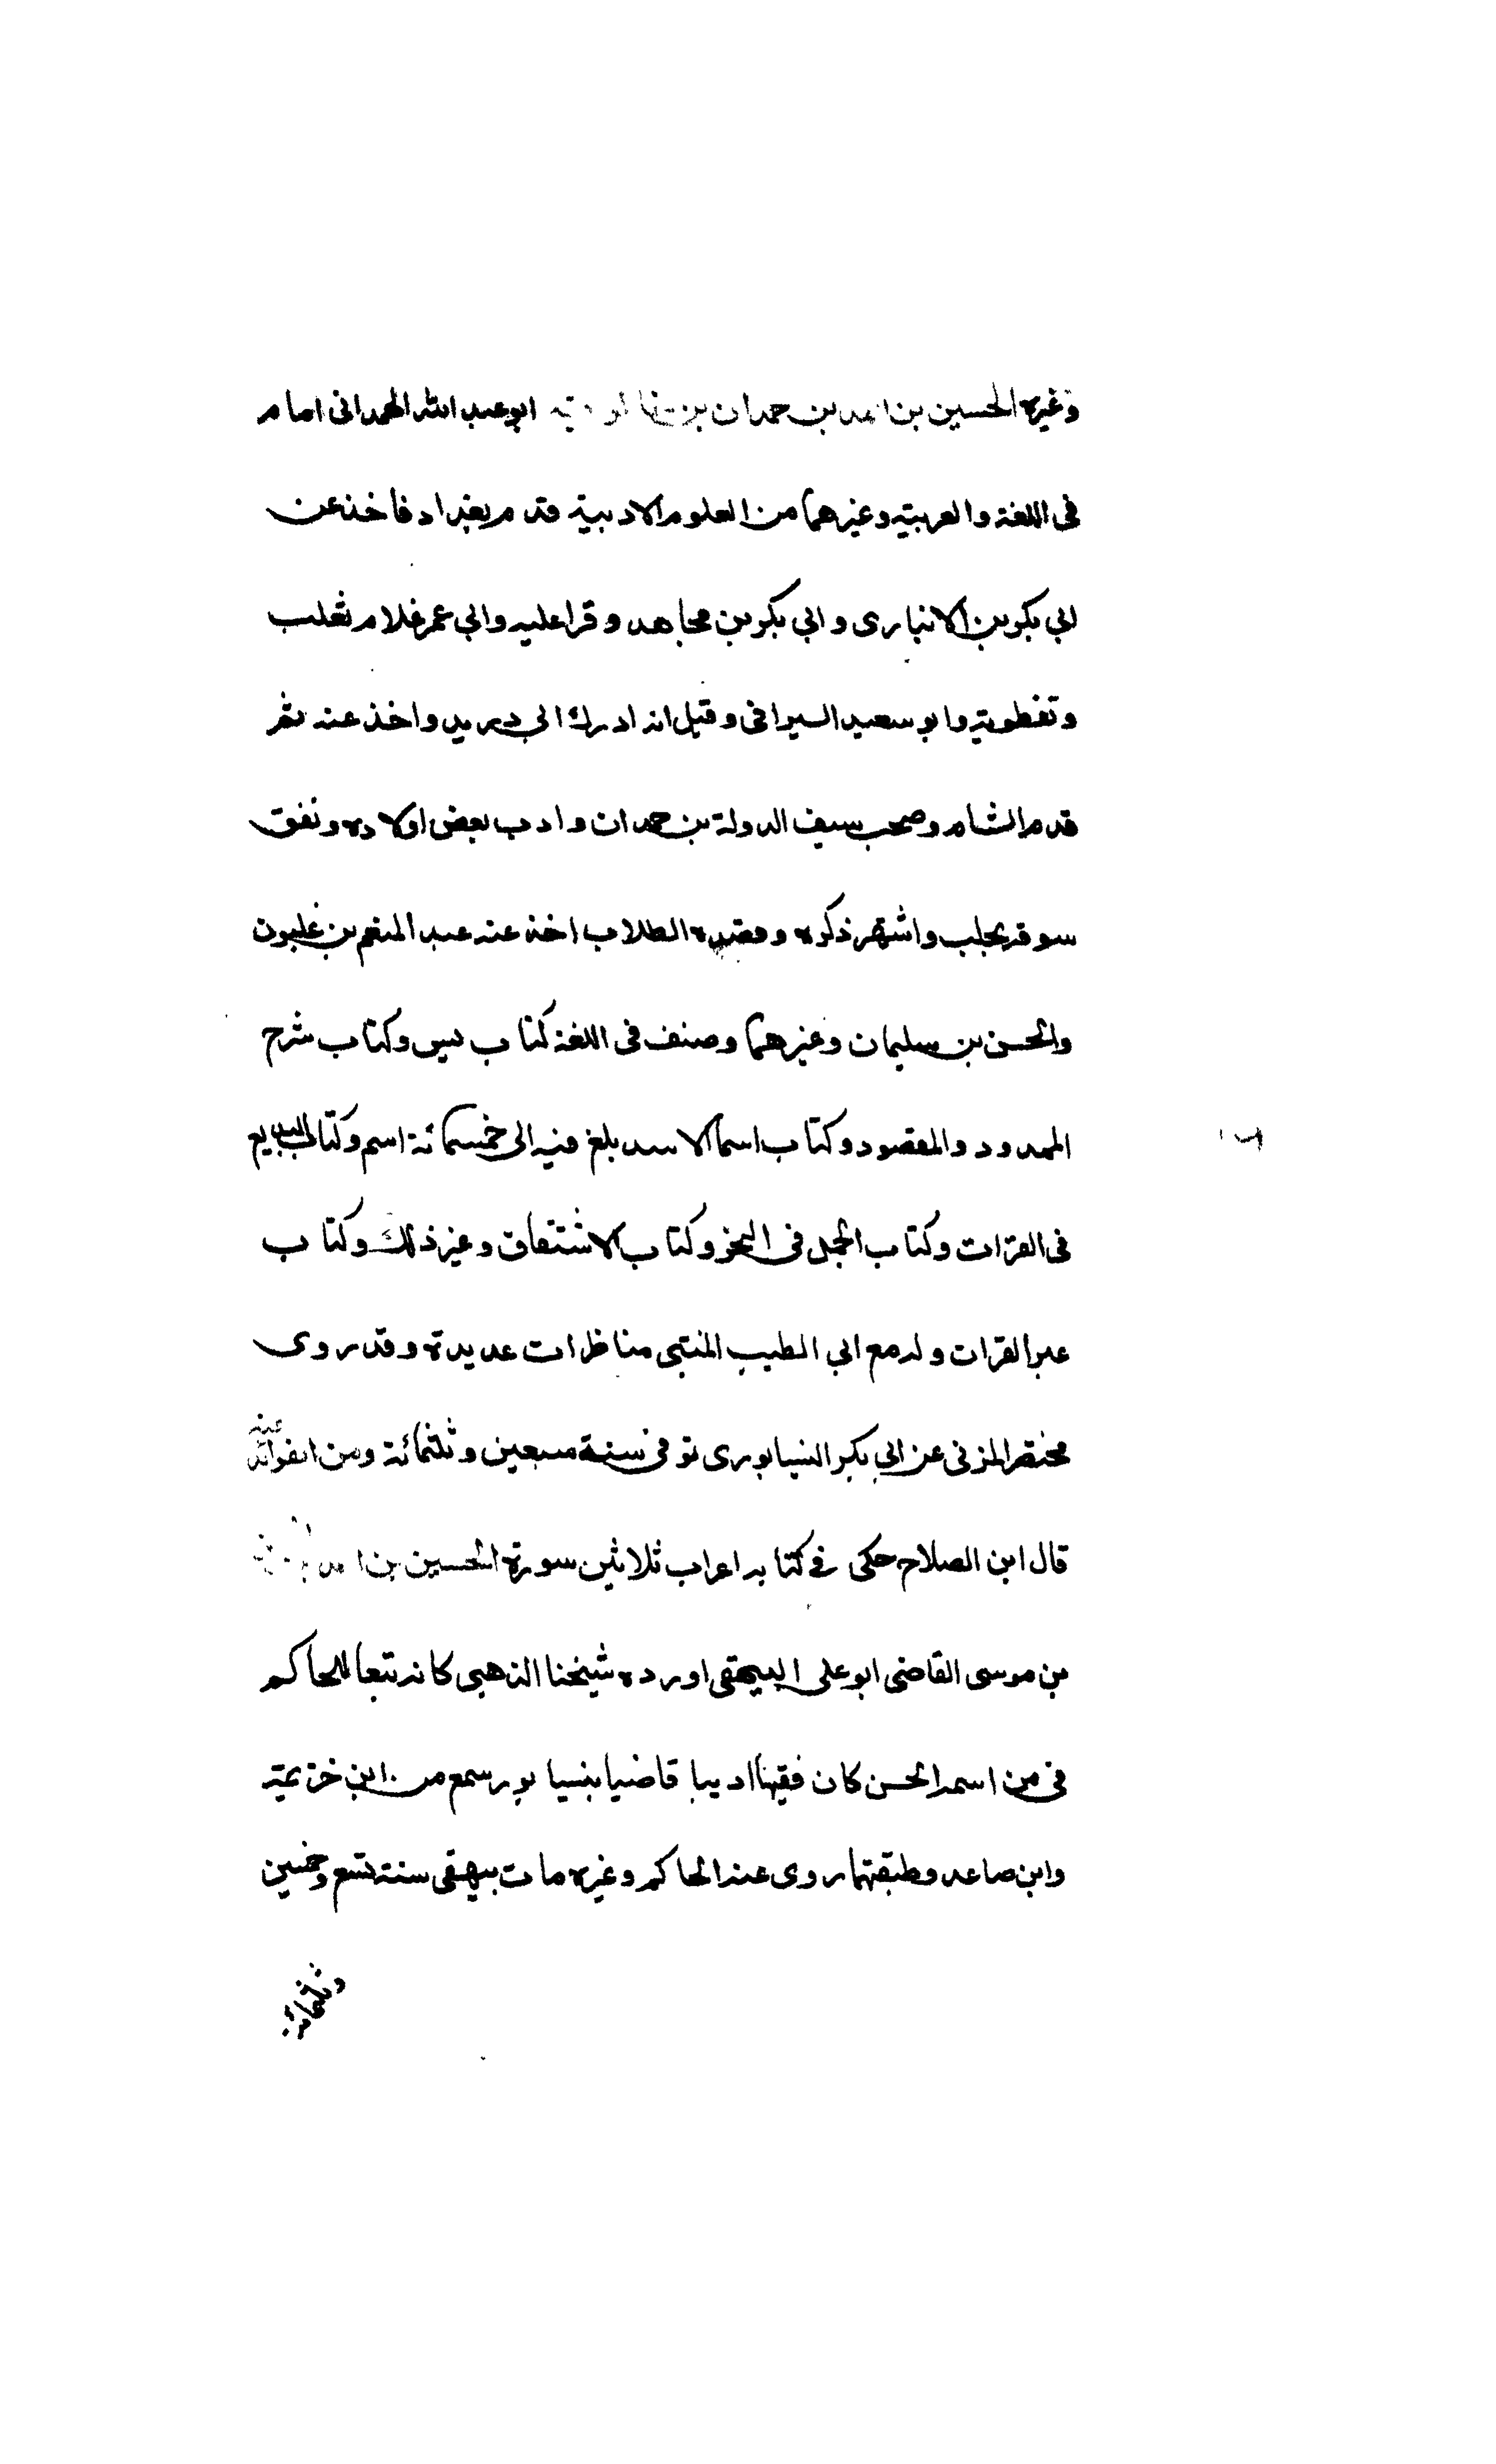 وغيره الحسين بن احمد بن حمدان بن خالويه ابو عبد الله الهمدانى امام
فى اللغة والعربية وغيرهما من العلوم الادبية قدم بغداد فاخذ عن
ابي بكر بن الانبارى وابي بكر بن مجاهد وقرا عليه وابي عمر غلام ثعلب
ونفطويه وابو سعيد السيرافى وقيل انه ادرك ابي دريد واخذ عنه ثم
قدم الشام وصحب سيف الدولة بن حمدان وادب بعض اولاده ونفق
سوقه بحلب واشتهر ذكره وقصده الطلاب اخذ عنه عبد المنعم بن غلبون
والحسن بن سليمان وغيرهما وصنف فى اللغة كتاب ليس وكتاب شرح
الممدود والمقصود وكتاب اسما الاسد بلغ فيه الى خمسمائة اسم وكتاب البديع
فى القرات وكتاب الجمل فى النحو وكتاب الاشتقاق وغير ذلك وكتاب
عبر القرات وله مع ابي الطيب المتنبى مناظرات عديدة وقد روى
مختصر المزنى عن ابي بكر النيسابورى توفى سنة سبعين وثلثمائة ومن الفوائد عنه
قال ابن الصلاح حكى في كتابه اعراب ثلاثين سورة الحسين بن احمد
بن موسى القاضى ابو على البيهقى اورده شيخنا الذهبى كانه تبعا للحاكم
فى من اسمه الحسن كان فقيها اديبا قاضيا بنسيابور سمع من ابن خزيمة
وابن صاعد وطبقتهما روى عنه الحاكم وغيره مات ببيهقى سنة تسع وخمسين
وثلثمائة